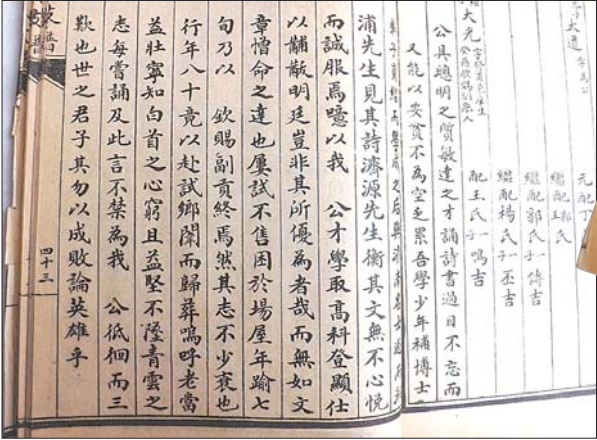 大道
大光
元配丁
繼配郭氏
繼配郭氏一傳吉
繼配楊氏一丕吉
配王氏一鳴吉
公具聰明之質敏達之才誦詩書過目不忘而
又能以安貧不為空乏累吾學少年補博士
浦先生見其詩濟源先生衡其文無不心悅
而誠服焉噫以我 公才學取高科登顯仕
以黼黻明廷豈非其所優為者哉而無如文
章憎命之達也屢試不售困於場屋年踰七
旬乃以 欽賜副貢終焉然其志不少衰也
行年八十竟以赴試鄉闈而歸葬嗚呼老當
益壯寧知白首之心窮且益堅不墜青雲之
志每嘗誦及此言不禁為我 公低徊而三
歎也世之君子其勿以成敗論英雄乎
四十三